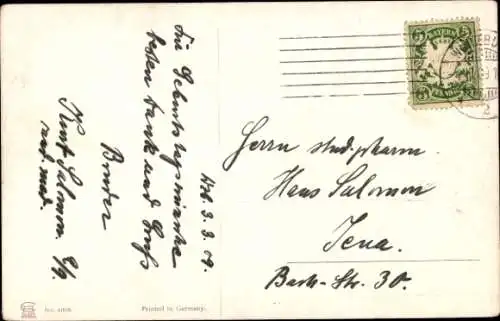 Wzb. 3. 3. 09.
Für Geburtstagswünsche
besten Dank und Gruß
Bruder
Kurt Salomon
cand. med.
BAYERN
5 5
PFENNIG
2
Herrn stud. pharm.
Hans Salomon
Jena.
Bach-Str. 30.
Printed in Germany.